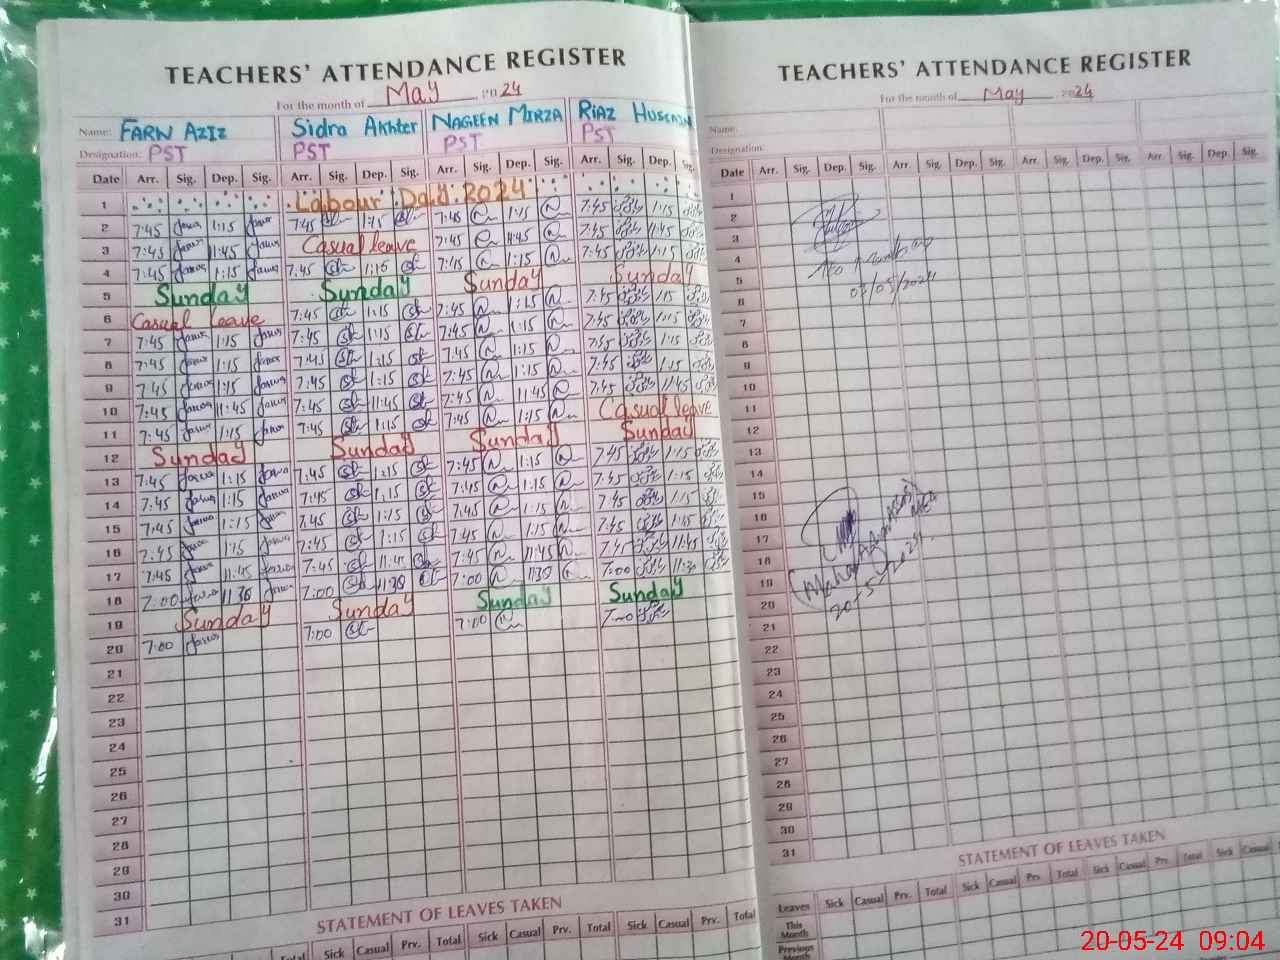 TEACHERS' ATTENDANCE REGISTER
For the month of May 2024
Name: FARN AZIZ Sidra Akhter NAGEEN MIRZA RIAZ HUSSAIN
Designation: PST PST PST PST
Date Arr. Sig. Dep. Sig. Arr. Sig. Dep. Sig. Arr. Sig. Dep. Sig. Arr. Sig. Dep. Sig.
1 Labour Day 2024
2 7:45 1:15 7:45 1:15 7:45 1:15 7:45 1:15
3 7:45 11:45 Casual leave 7:45 11:45 7:45 11:45
4 7:45 1:15 7:45 1:15 7:45 1:15 7:45 1:15
5 Sunday Sunday Sunday Sunday
6 Casual leave 7:45 1:15 7:45 1:15 7:45 1:15
7 7:45 1:15 7:45 1:15 7:45 1:15 7:45 1:15
8 7:45 1:15 7:45 1:15 7:45 1:15 7:45 1:15
9 7:45 1:15 7:45 1:15 7:45 1:15 7:45 1:15
10 7:45 11:45 7:45 11:45 7:45 11:45 7:45 11:45
11 7:45 1:15 7:45 1:15 7:45 1:15 Casual leave
12 Sunday Sunday Sunday Sunday
13 7:45 1:15 7:45 1:15 7:45 1:15 7:45 1:15
14 7:45 1:15 7:45 1:15 7:45 1:15 7:45 1:15
15 7:45 1:15 7:45 1:15 7:45 1:15 7:45 1:15
16 7:45 1:15 7:45 1:15 7:45 1:15 7:45
17 7:45 11:45 7:45 11:45 7:45 11:45 7:45 11:45
18 7:00 11:30 7:00 11:30 7:00 11:30 7:00 11:30
19 Sunday Sunday Sunday Sunday
20 7:00 7:00 7:00 7:00
21
22
23
24
25
26
27
28
29
30
31
STATEMENT OF LEAVES TAKEN
Total Sick Casual Prv. Total Sick Casual Prv. Total Sick Casual Prv. Total
TEACHERS' ATTENDANCE REGISTER
For the month of May 2024
Name:
Designation:
Date Arr. Sig. Dep. Sig. Arr. Sig. Dep. Sig. Arr. Sig. Dep. Sig. Arr. Sig. Dep. Sig.
1
2
3
4
5
6
7
8
9
10
11
12
13
14
15
16
17
18
19
20
21
22
23
24
25
26
27
28
29
30
31
03/05/2024
20-5-2024
STATEMENT OF LEAVES TAKEN
Leaves Sick Casual Prv. Total Sick Casual Prv. Total Sick Casual Prv. Total Sick Casual
This Month
Previous Month
20-05-24 09:04